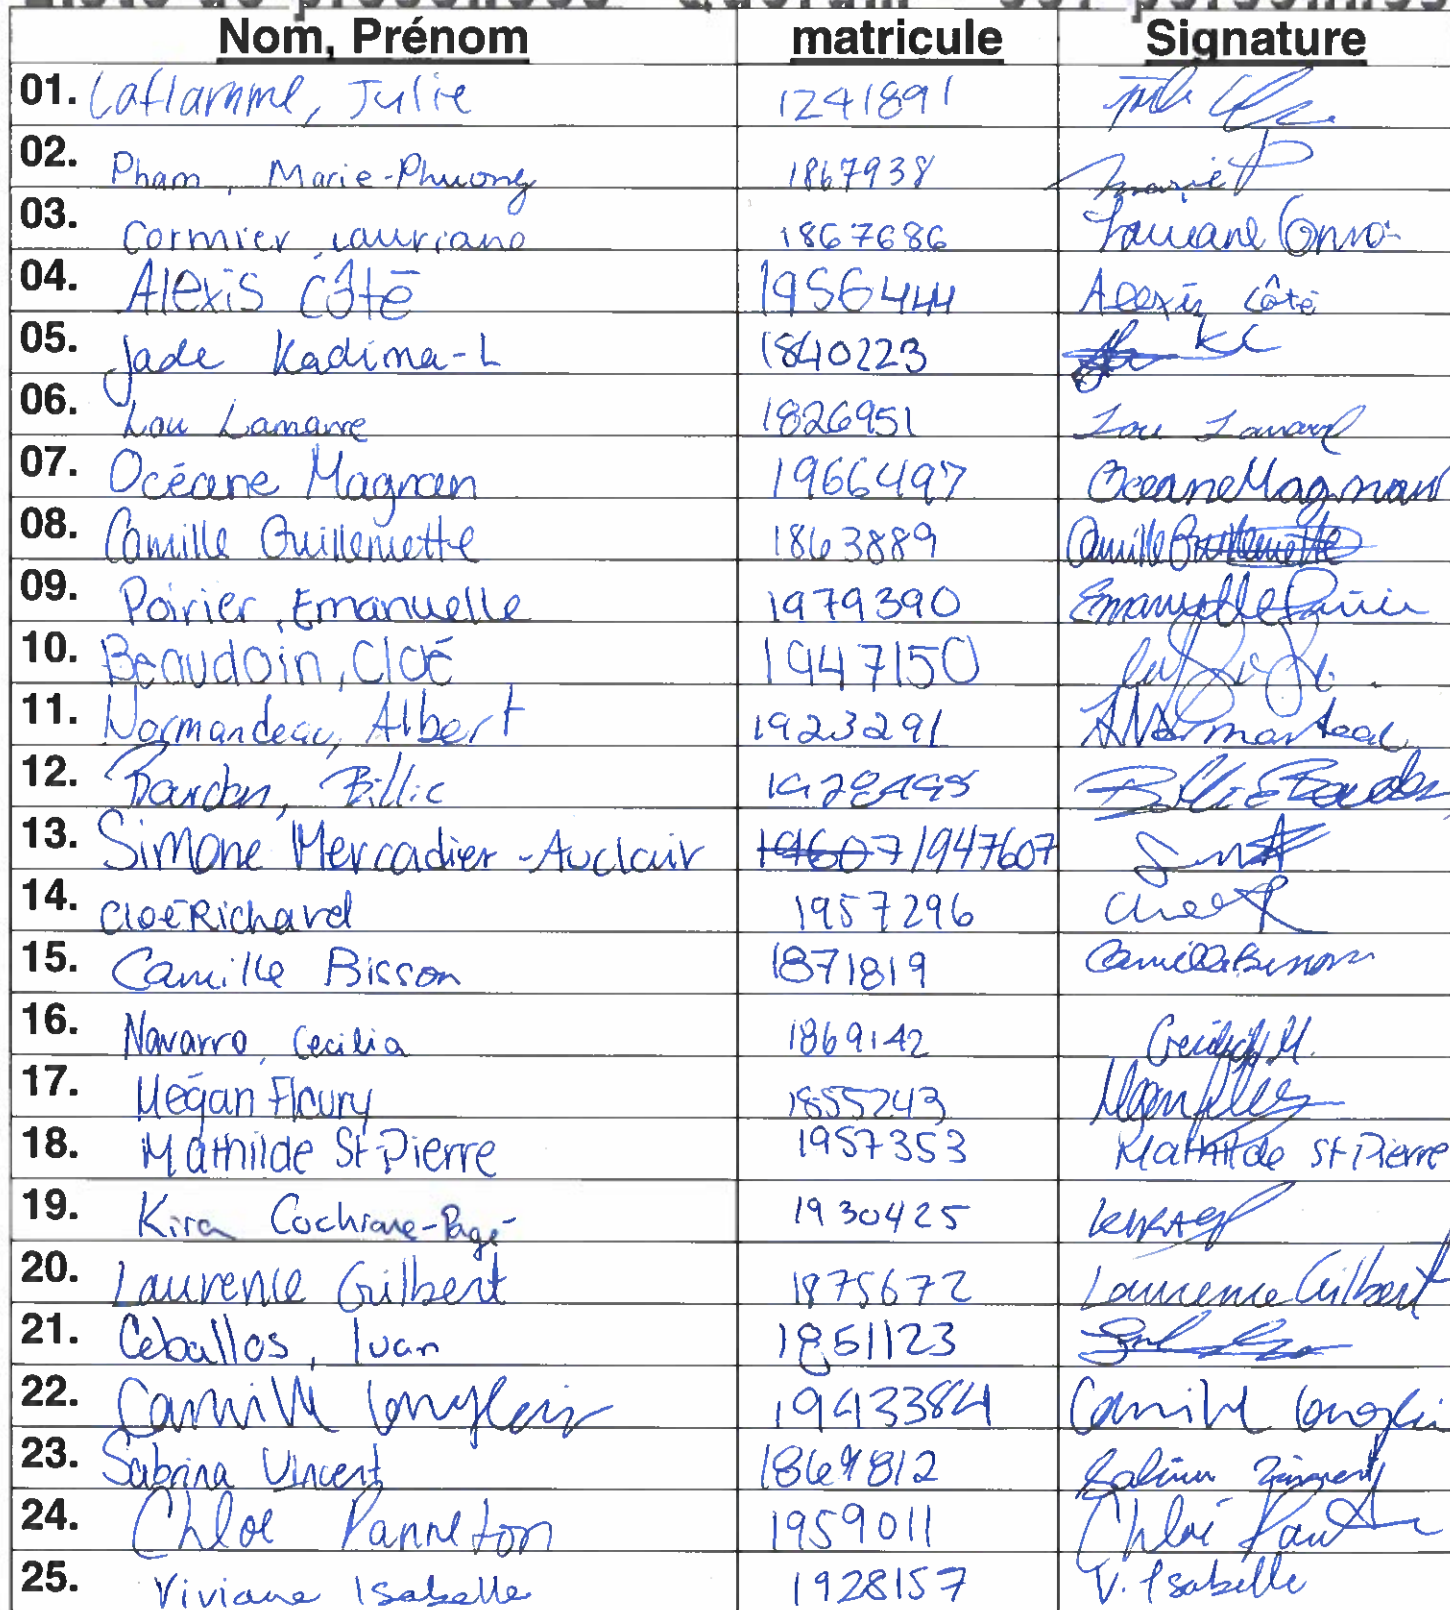 Nom, Prénom matricule Signature
01. Laflamme, Julie 1241891
02. Pham, Marie-Phuong 1867938 Marie P
03. Cormier, Lauriane 1867686 Lauriane
04. Alexis Côté 1956444 Alexis Côté
05. Jade Kadima-L 1840223 KL
06. Lou Lamarre 1826951 Lou Lamarre
07. Océane Magnan 1966497 Océane Magnan
08. Camille Guillemette 1863889 Camille Guillemette
09. Poirier, Emanuelle 1979390 Emanuelle Poirier
10. Beaudoin, Cloé 1947150
11. Normandeau, Albert 1923291 A Normandeau
12. Billie Billie
13. Simone Mercadier-Auclair 19607 1947607
14. Cloé Richard 1957296
15. Camille Bisson 1871819 Camille Bisson
16. Navarro, Cecilia 1869142
17. Mégan Fleury 1855243
18. Mathilde St-Pierre 1957353 Mathilde St-Pierre
19. Kira Cochrane-Pagé 1930425
20. Laurence Gilbert 1875672 Laurence Gilbert
21. Ceballos, Ivan 1851123
22. Camille Langlois 19433884 Camille Langlois
23. Sabrina Vincent 1869812 Sabrina Vincent
24. Chloé Panneton 1959011 Chloé
25. Viviane Isabelle 1928157 V. Isabelle